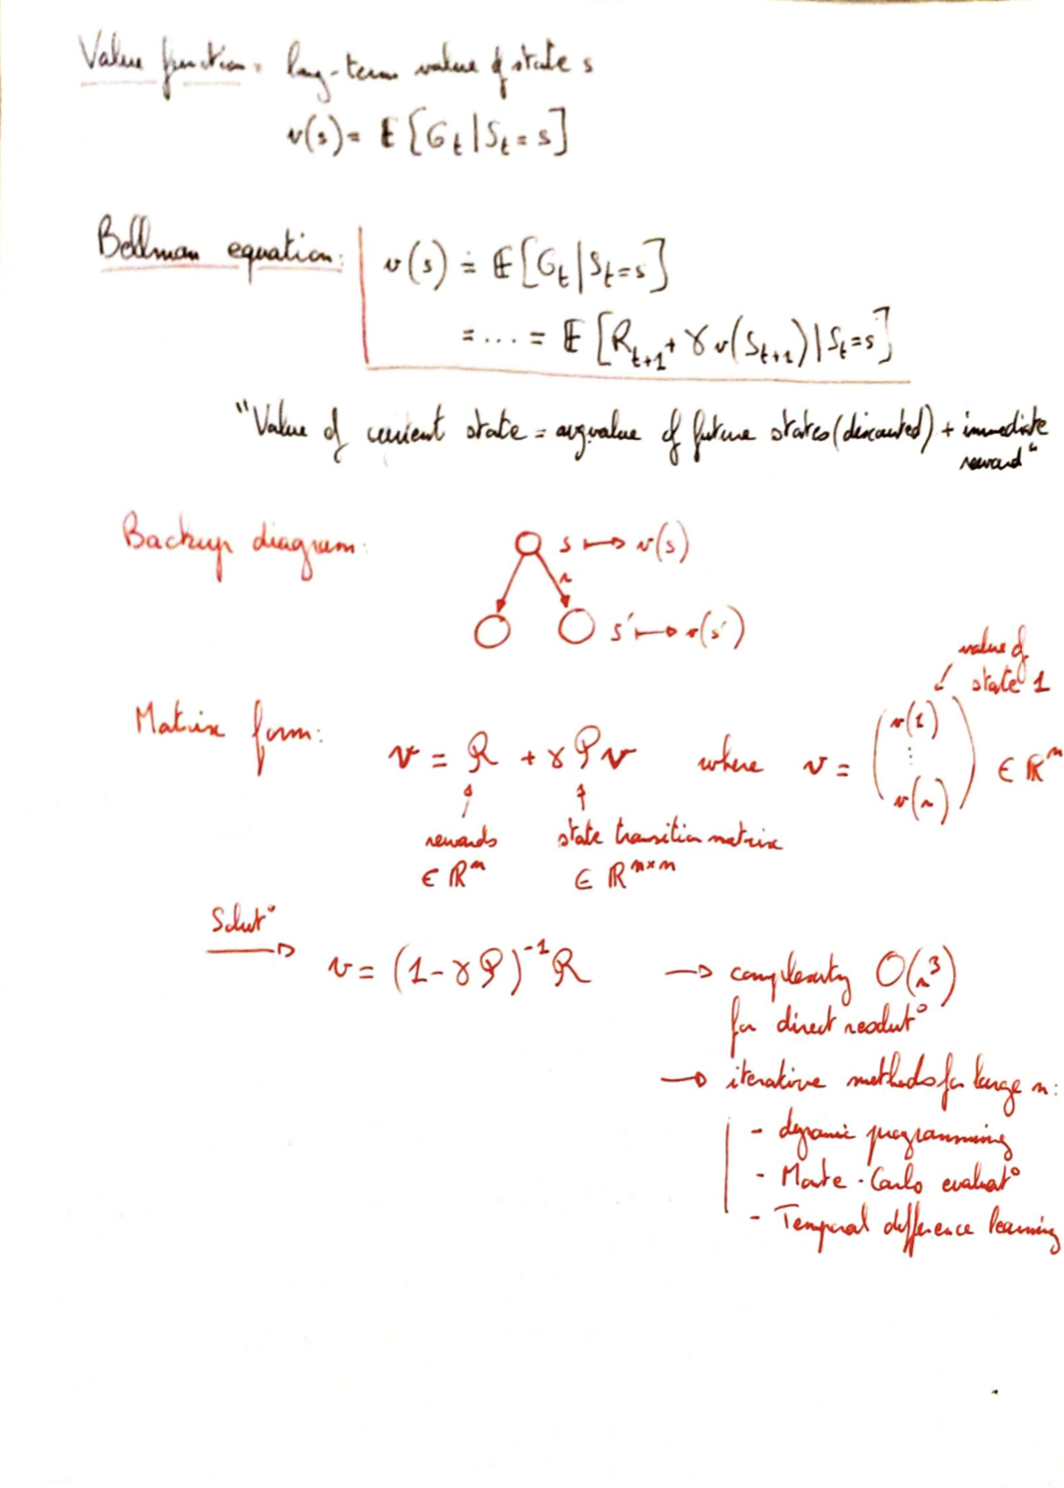 Value function: long-term value of state s
v(s) = E[G_t | S_t = s]
Bellman equation: v(s) ≐ E[G_t | S_t = s]
= ... = E[R_{t+1} + γ v(S_{t+1}) | S_t = s]
"Value of current state = avg. value of future states (discounted) + immediate
reward"
Backup diagram: s ↦ v(s)
r
s' ↦ v(s')
value of
state 1
Matrix form: v = R + γ P v where v = (v(1) ⋮ v(n)) ∈ ℝ^n
rewards state transition matrix
∈ ℝ^n ∈ ℝ^{n×n}
Solut°
v = (1 - γP)^{-1} R → complexity O(n^3)
for direct resolut°
→ iterative methods for large n:
- dynamic programming
- Monte-Carlo evaluat°
- Temporal difference learning